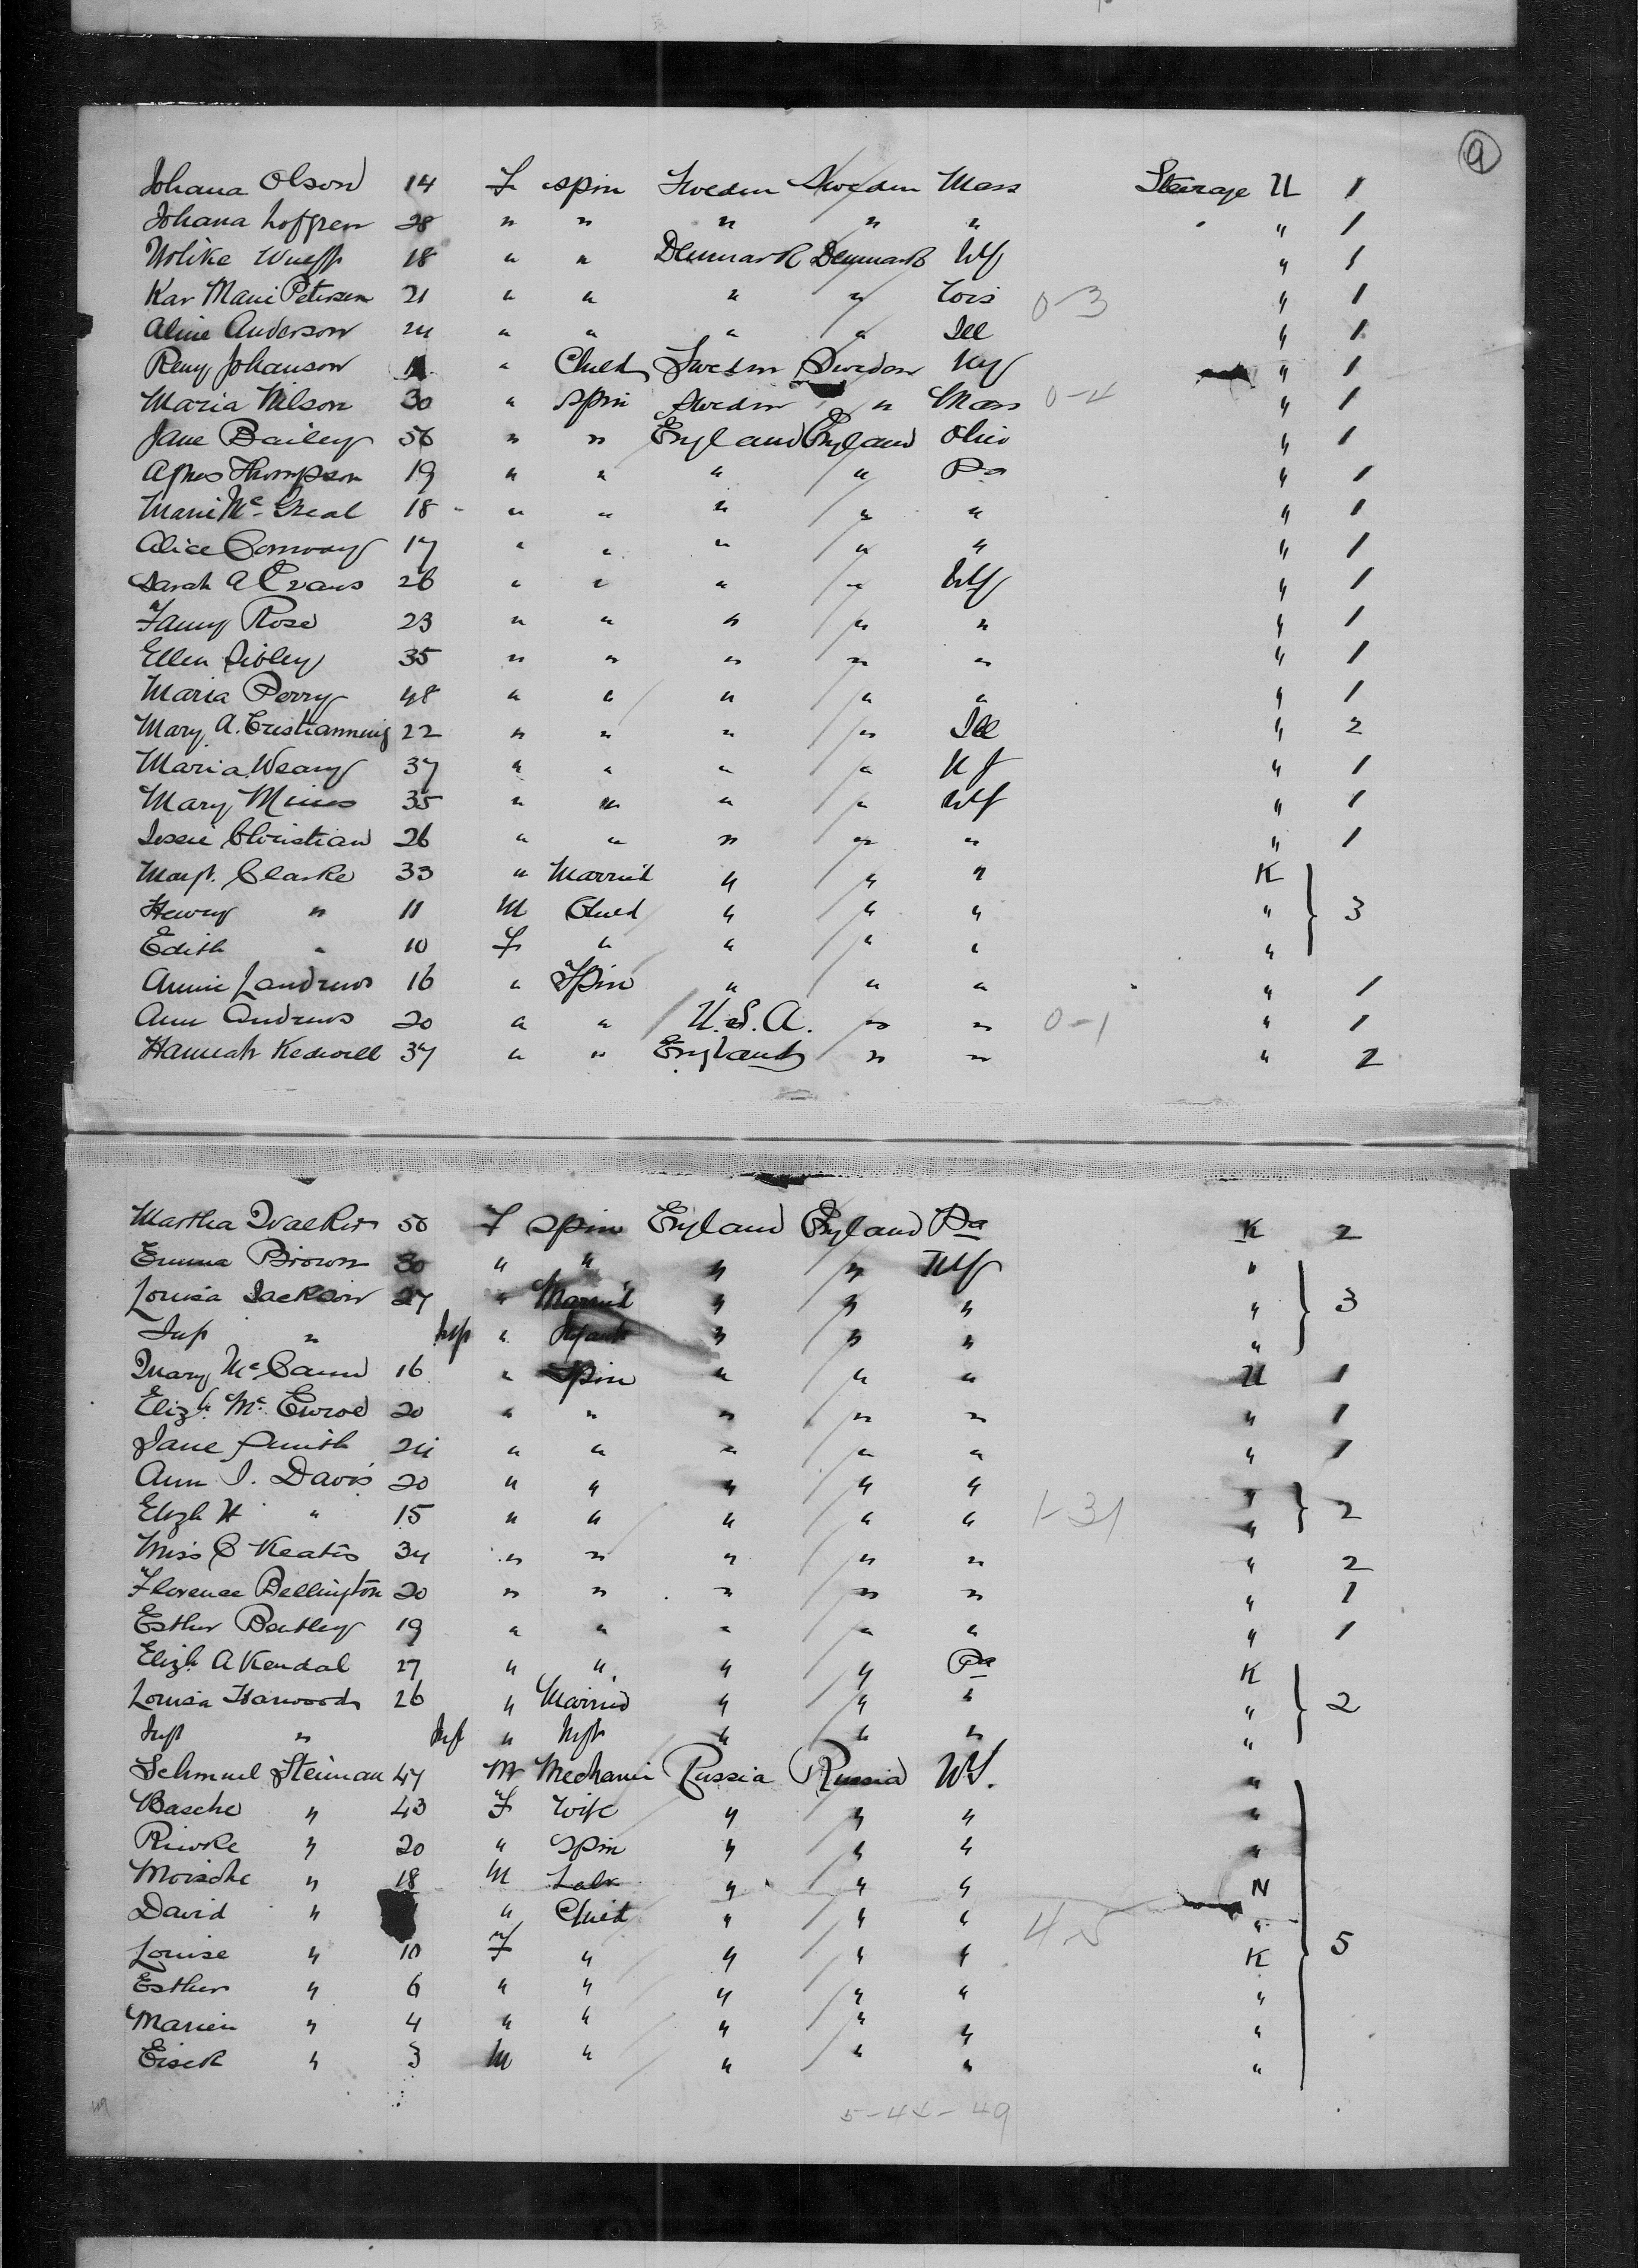 9
Johana Olson 14 F Spin Sweden Sweden Mass Steerage U 1
Johana Lofgren 28 " " " " " " 1
18 " " Denmark Denmark NY " 1
Kar Marie Petersen 21 " " " " Wis 0-3 " 1
Aline Anderson 24 " " " " Ill " 1
Johanson " Child Sweden Sweden NY " 1
Maria Nilson 30 " Spin Sweden " Mass 0-4 " 1
Jane Bailey 56 " " England England Ohio " 1
Agnes Thompson 19 " " " " Pa " 1
Marie Mc Greal 18 " " " " " " 1
Alice Conway 17 " " " " " " 1
Sarah A Evans 26 " " " " NY " 1
Fanny Rose 23 " " " " " " 1
Ellen Sibley 35 " " " " " " 1
Maria Perry 48 " " " " " " 1
Mary A. 22 " " " " Ill " 2
Maria Weary 37 " " " " NJ " 1
Mary 35 " " " " NY " 1
Jessie Christian 26 " " " " " " 1
Margt. Clarke 33 " Married " " " K
Henry " 11 M Child " " " " 3
Edith " 10 F " " " " "
Annie Landrews 16 " Spin " " " " 1
Ann Andrews 20 " " U.S.A. " " 0-1 " 1
Hannah Kedwell 37 " " England " " " 2
Martha Walker 56 F Spin England England Pa K 2
Emma Brown 30 " " " " NY "
Louisa Jackson 27 " Married " " " " 3
Inf " Inf " Infant " " " "
Mary McCann 16 " Spin " " " U 1
Elizh. Mc 20 " " " " " " 1
Jane Smith 24 " " " " " " 1
Ann J. Davis 20 " " " " " "
Elizh H " 15 " " " " " 1-31 " 2
Miss C Keates 34 " " " " " " 2
Florence Bellington 20 " " " " " " 1
Esther Bentley 19 " " " " " " 1
Elizh A Kendal 27 " " " " Pa K
Louisa Harwood 26 " Married " " " " 2
Inft " Inf " Inft " " " "
Schmuel Steiman 47 M Mechanic Russia Russia NY. "
Basche " 43 F Wife " " " "
Riwke " 20 " Spin " " " "
Moische " 18 M Labr " " " N
David " " Child " " " 4-5 "
Louise " 10 F " " " " K 5
Esther " 6 " " " " " "
Marien " 4 " " " " " "
Eisek " 3 M " " " " "
5-44-49